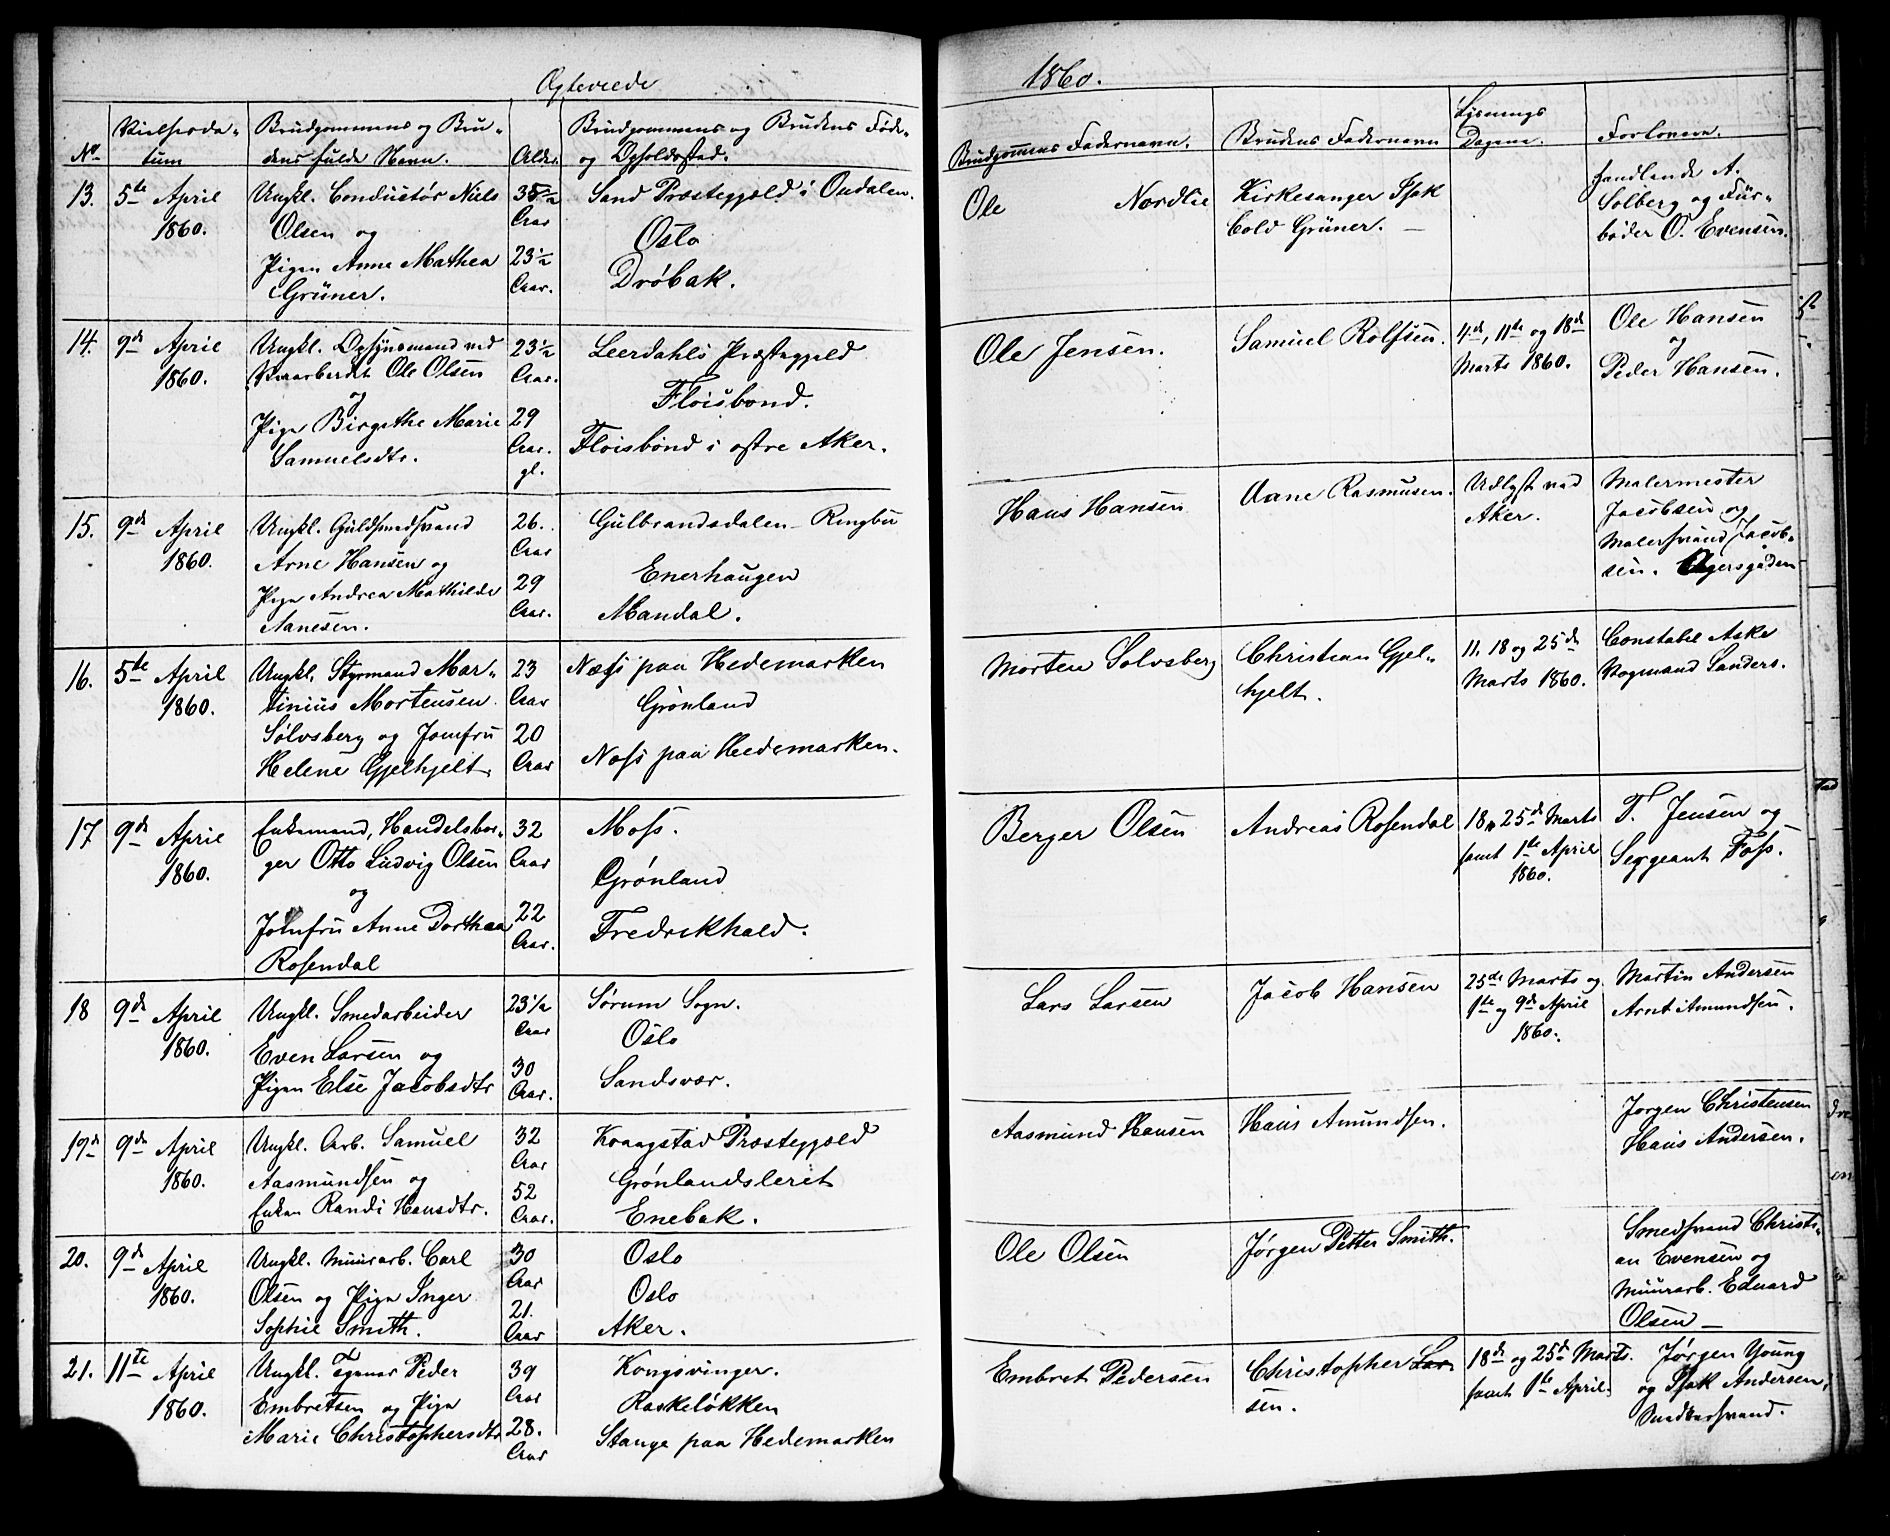 Ægteviede
1860.
No
Vielsesda-
tum
Brudgommens og Bru-
dens fulde Navn.
Alder.
Brudgommens og Brudens Føde-
og Opholdssted.
Brudgommens Fadernavn.
Brudens Fadernavn
Lysnings
Dagene.
Forlovere.
13.
5te April
1860.
Ungkl. Conductør Niels
Olsen og
Pigen Anne Mathea
Grüner.
35 1/2
Aar
23 1/2
Aar.
Sand Præstegjæld i Oudalen.
Oslo
Drøbak.
Ole Nordlie
Kirkesanger Isak
Cold Grüner. —
Handlende A.
Solberg og Før-
bøder O. Evensen.
14.
9de April
1860.
Ungkl. Opsynsmand ved
Veiarbeidet Ole Olsen
og
Pige Birgethe Marie
Samuelsdtr.
23 1/2
Aar.
29
Aar.
gl.
Leerdahls Præstegjeld
Fløisbond.
Fløisbond i østre Aker.
Ole Jensen.
Samuel Rolfsen.
4de, 11te og 18de
Marts 1860.
Ole Hansen
og
Peder Hansen.
15.
9de April
1860.
Ungkl. Guldsmedsvend
Arne Hansen og
Pige Andrea Mathilde
Aanesen.
26.
Aar
29
Aar.
Gulbrandsdalen - Ringbu
Enerhaugen
Mandal.
Hans Hansen
Aane Rasmusen.
Udlyst ved
Aker.
Malermester
Jacobsen og
Malersvend Jacob-
sen. Agersgaden
16.
5te April
1860.
Ungkl. Styrmand Mar-
tinius Mortensen
Solvsberg og Jomfru
Helene Gjelhjelt.
23
Aar
20
Aar
Næss paa Hedemarken
Grønland
Næss paa Hedemarken.
Morten Solvsberg
Christian Gjel-
hjelt.
11, 18 og 25de
Marts 1860.
Constabel Aske
Vogmand Sanders.
17
9de April
1860.
Enkemand, Handelsbor-
ger Otto Ludvig Olsen
og
Jomfru Anne Dorthea
Rosendal
32
Aar
22
Aar.
Moss.
Grønland
Fredrikhald.
Berger Olsen
Andreas Rosendal
18, 25de Marts
samt 1te April
1860.
T. Jensen og
Sergeant Foss.
18
9de April
1860.
Ungkl. Smedarbeider
Even Larsen og
Pigen Else Jacobsdtr
23 1/2
Aar
30
Aar.
Sørum Sogn.
Oslo
Sandsvær.
Lars Larsen
Jacob Hansen
25de Marts og
1te og 9de April
1860.
Martin Andersen
Arnt Amundsen.
19de
9de April
1860.
Ungkl. Arb. Samuel
Aasmundsen og
Enken Randi Hansdtr.
32
Aar
52
Aar.
Kraagstad Præstegjæld
Grønlandsleret
Enebak.
Aasmund Hansen
Hans Amundsen.
Jørgen Christensen
Hans Andersen.
20.
9de April
1860.
Ungkl. Muurarb. Carl
Olsen og Pige Inger
Sophie Smith.
30
Aar
21.
Aar
Oslo
Oslo
Aker.
Ole Olsen
Jørgen Petter Smith.
Smedsvend Christi-
an Evensen og
Muurarb. Eduard
Olsen —
21.
11te April
1860.
Ungkl. Tjener Peder
Embretsen og Pige
Marie Christophersdtr
39
Aar
28.
Aar
Kongsvinger.
Raskeløkken
Stange paa Hedemarken
Embret Pedersen
Christopher Lar-
sen.
18de og 25de Marts.
samt 1te April.
Jørgen Young
og Isak Andersen,
Snedkersvend.